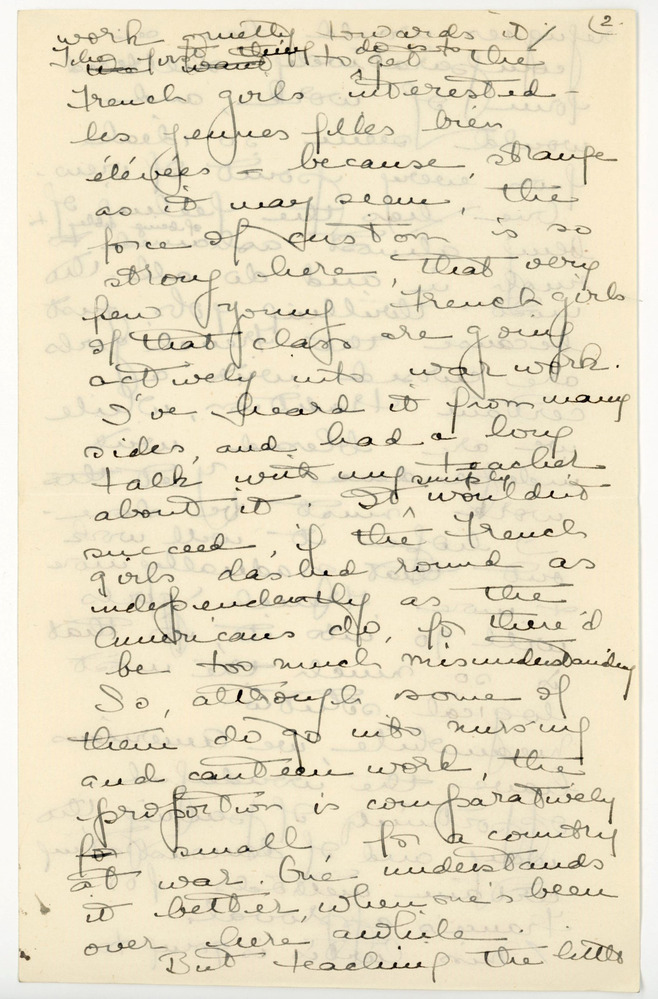 (2.
work quietly towards it /
The first thing to do is to get the
French girls interested –
les jeunes filles bien
élévées – because, strange
as it may seem, the
force of custom is so
strong here, that very
few young French girls
of that class are going
actively into war work.
I've heard it from many
sides, and had a long
talk with my teacher
about it. It simply wouldn't
succeed, if the French
girls dashed round as
independently as the
Americans do, for there'd
be too much misunderstanding
So, although some of
them do go into nursing
and canteen work, the
proportion is comparatively
small for a country
at war. One understands
it better, when one's been
over here awhile.
But teaching the little